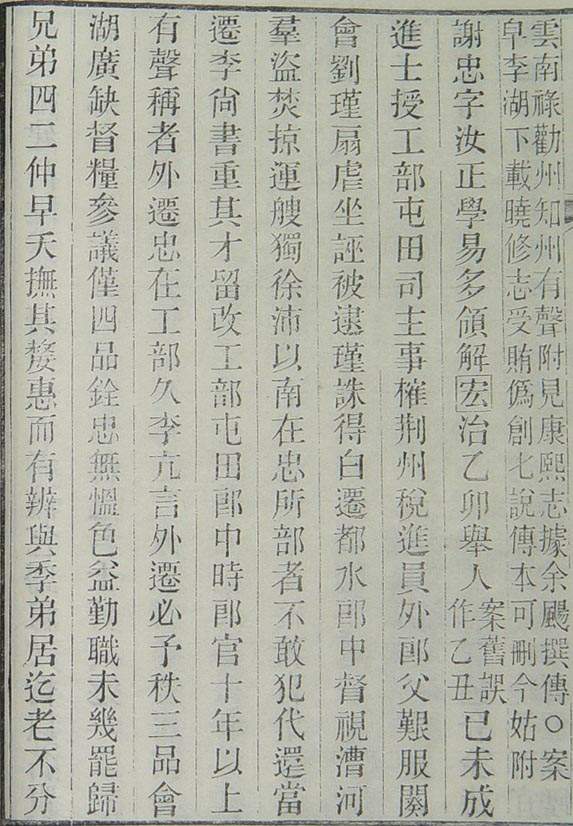 雲南祿勸州知州有聲附見康熙志據余颺撰傳○案
皁李湖下載曉修志受賄僞創七說傳本可刪今姑附
謝忠字汝正學易多領解宏治乙卯舉人案舊誤作乙丑已未成
進士授工部屯田司主事榷荆州稅進員外郎父艱服闋
會劉瑾扇虐坐誣被逮瑾誅得白遷都水郎中督視漕河
羣盜焚掠運艘獨徐沛以南在忠所部者不敢犯代還當
遷李尚書重其才留改工部屯田郎中時郎官十年以上
有聲稱者外遷忠在工部久李亢言外遷必予秩三品會
湖廣缺督糧參議僅四品銓忠無慍色益勤職未幾罷歸
兄弟四二仲早夭撫其嫠惠而有辨與季弟居迄老不分